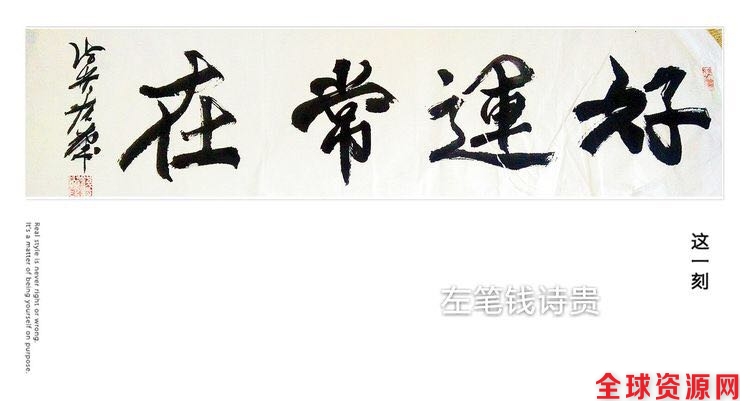 好運常在
这一刻
左笔钱诗贵
Real style is never right or wrong.
It's a matter of being yourself on purpose.
全球资源网